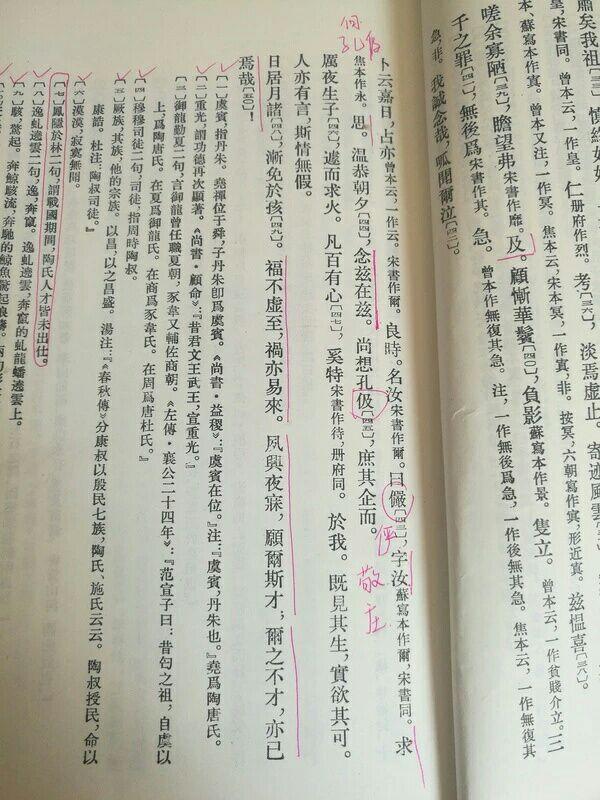 肅矣我祖
皇,宋書同。曾本云,一作皇。仁册府作烈。考〔三六〕,淡焉虛止。寄迹風雲
本蘇寫本作真。曾本又注,一作冥。焦本云,宋本冥,一作寘,非。按冥,六朝寫作寘,形近真。茲愠喜〔三八〕。
嗟余寡陋〔三九〕,瞻望弗宋書作靡。及。顧慚華鬢〔四〇〕,負影蘇寫本作景。隻立。曾本云,一作貧賤介立。三
千之罪〔四一〕,無後爲宋書作其。急。曾本作無復其急。注,一作無後爲急,一作後無其急。焦本云,一作無復其
急,非。我誠念哉,呱聞爾泣〔四二〕。
卜云嘉日,占亦曾本云,一作云。宋書作爾。良時。名汝宋書作爾。曰儼〔四三〕,字汝蘇寫本作爾,宋書同。求
焦本作永。思。溫恭朝夕〔四四〕,念茲在茲。尚想孔伋〔四五〕,庶其企而。
厲夜生子〔四六〕,遽而求火。凡百有心〔四七〕,奚特宋書作待,册府同。於我。既見其生,實欲其可。
人亦有言,斯情無假。
日居月諸〔四八〕,漸免於孩〔四九〕。福不虛至,禍亦易來。夙興夜寐,願爾斯才;爾之不才,亦已
焉哉〔五〇〕!
〔一〕虞賓,指丹朱。堯禪位于舜,子丹朱卽爲虞賓。《尚書·益稷》:『虞賓在位。』注:『虞賓,丹朱也。』堯爲陶唐氏。
〔二〕重光,謂功德再次顯著。《尚書·顧命》:『昔君文王武王,宣重光。』
〔三〕御龍勤夏二句,言御龍曾任職夏朝,豕韋又輔佐商朝。《左傳·襄公二十四年》:『范宣子曰:昔匄之祖,自虞以
上,爲陶唐氏。在夏爲御龍氏。在商爲豕韋氏。在周爲唐杜氏。』
〔四〕穆穆司徒二句,司徒,指周時陶叔。
〔五〕厥族,其族,他的宗族。以昌,以之昌盛。湯注:『《春秋傳》分康叔以殷民七族,陶氏、施氏云云。陶叔授民,命以
康誥。杜注:陶叔司徒。』
〔六〕漠漠,寂寞無聞。
〔七〕鳳隱於林二句,謂戰國期間,陶氏人才皆未出仕。
〔八〕逸虬遶雲二句,逸,奔竄。逸虬遶雲,奔竄的虬龍蟠遶雲上。
〔九〕駭,驚起。奔鯨駭流,奔馳的鯨魚驚起浪濤。
敬